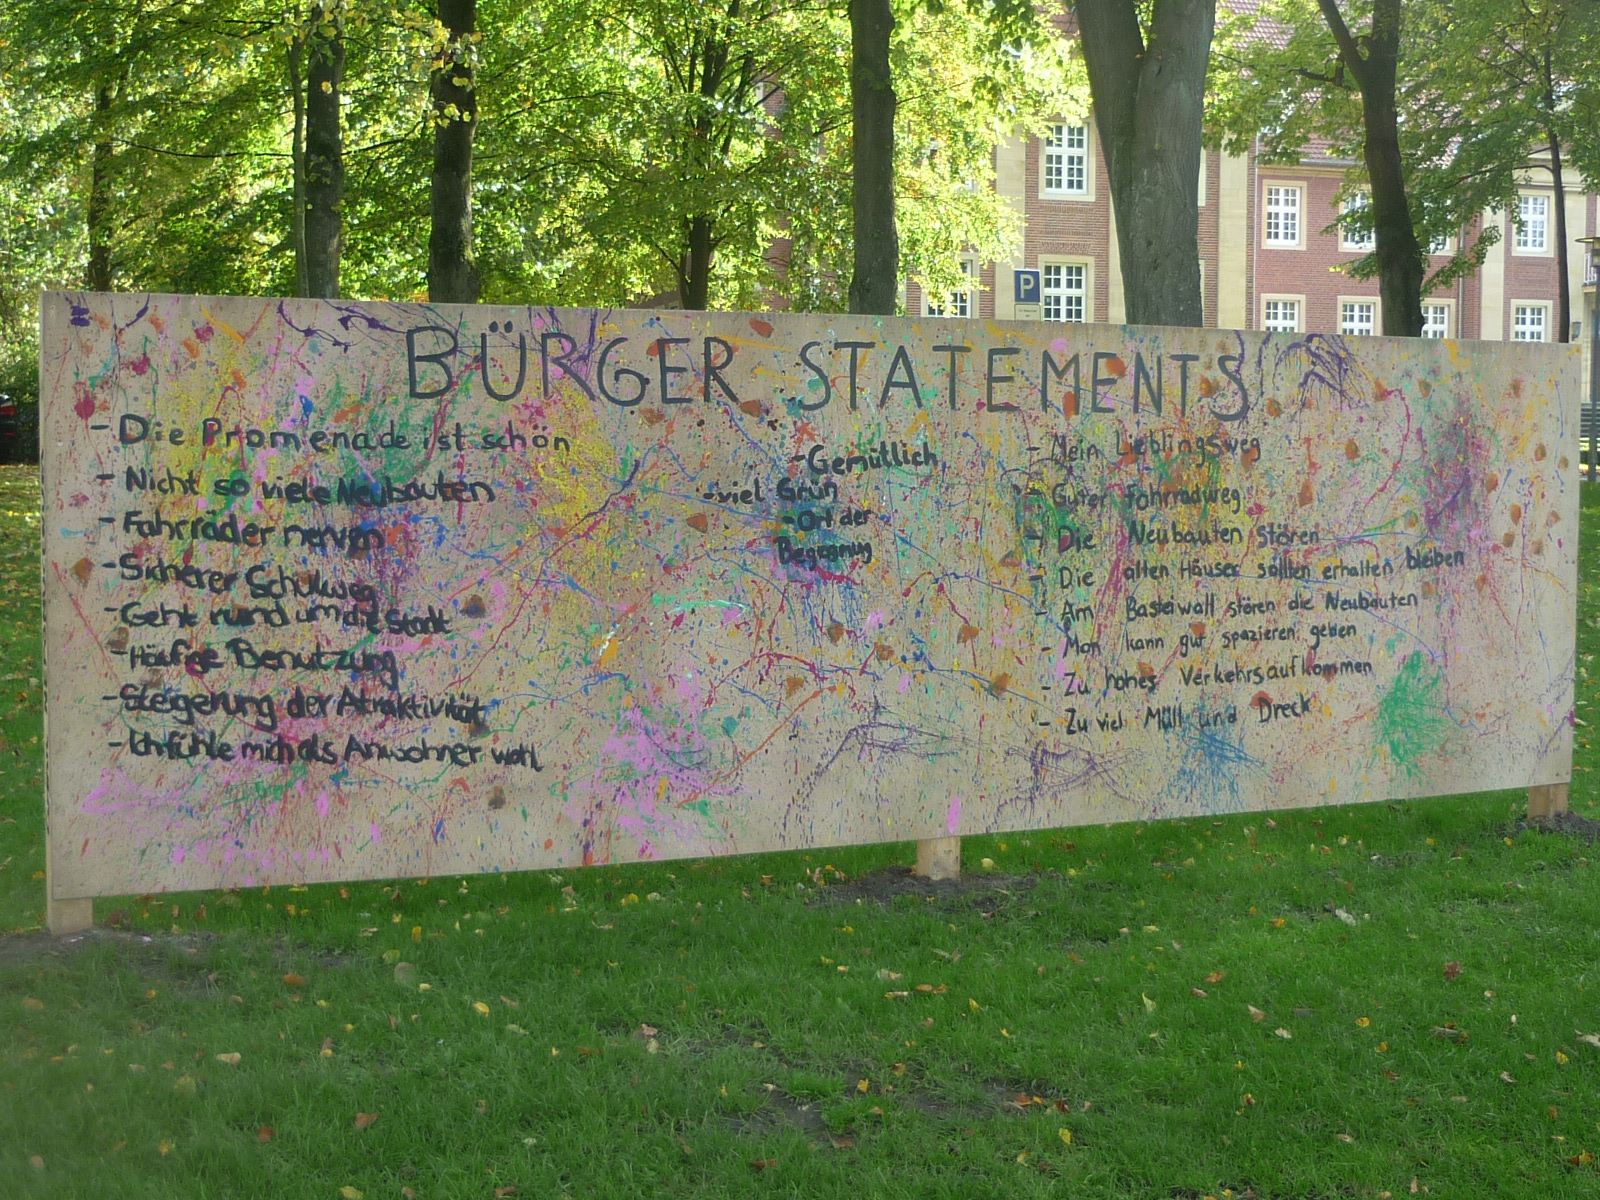 P
BÜRGER STATEMENTS
- Die Promenade ist schön
- Nicht so viele Neubauten
- Fahrräder nerven
- Sicherer Schulweg
- Geht rund um die Stadt
- Häufige Benutzung
- Steigerung der Atraktivität
- Ich fühle mich als Anwohner wohl
- Gemütlich
- viel Grün
- Ort der
Begegnung
- Mein Lieblingsweg
- Guter Fahrradweg
- Die Neubauten stören
- Die alten Häuser sollten erhalten bleiben
- Am Basteiwall stören die Neubauten
- Man kann gut spazieren gehen
- Zu hohes Verkehrsaufkommen
- Zu viel Müll und Dreck